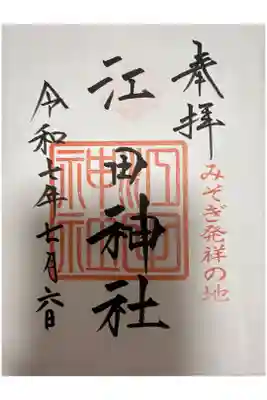 奉拝
みそぎ発祥の地
江田神社
令和七年七月六日